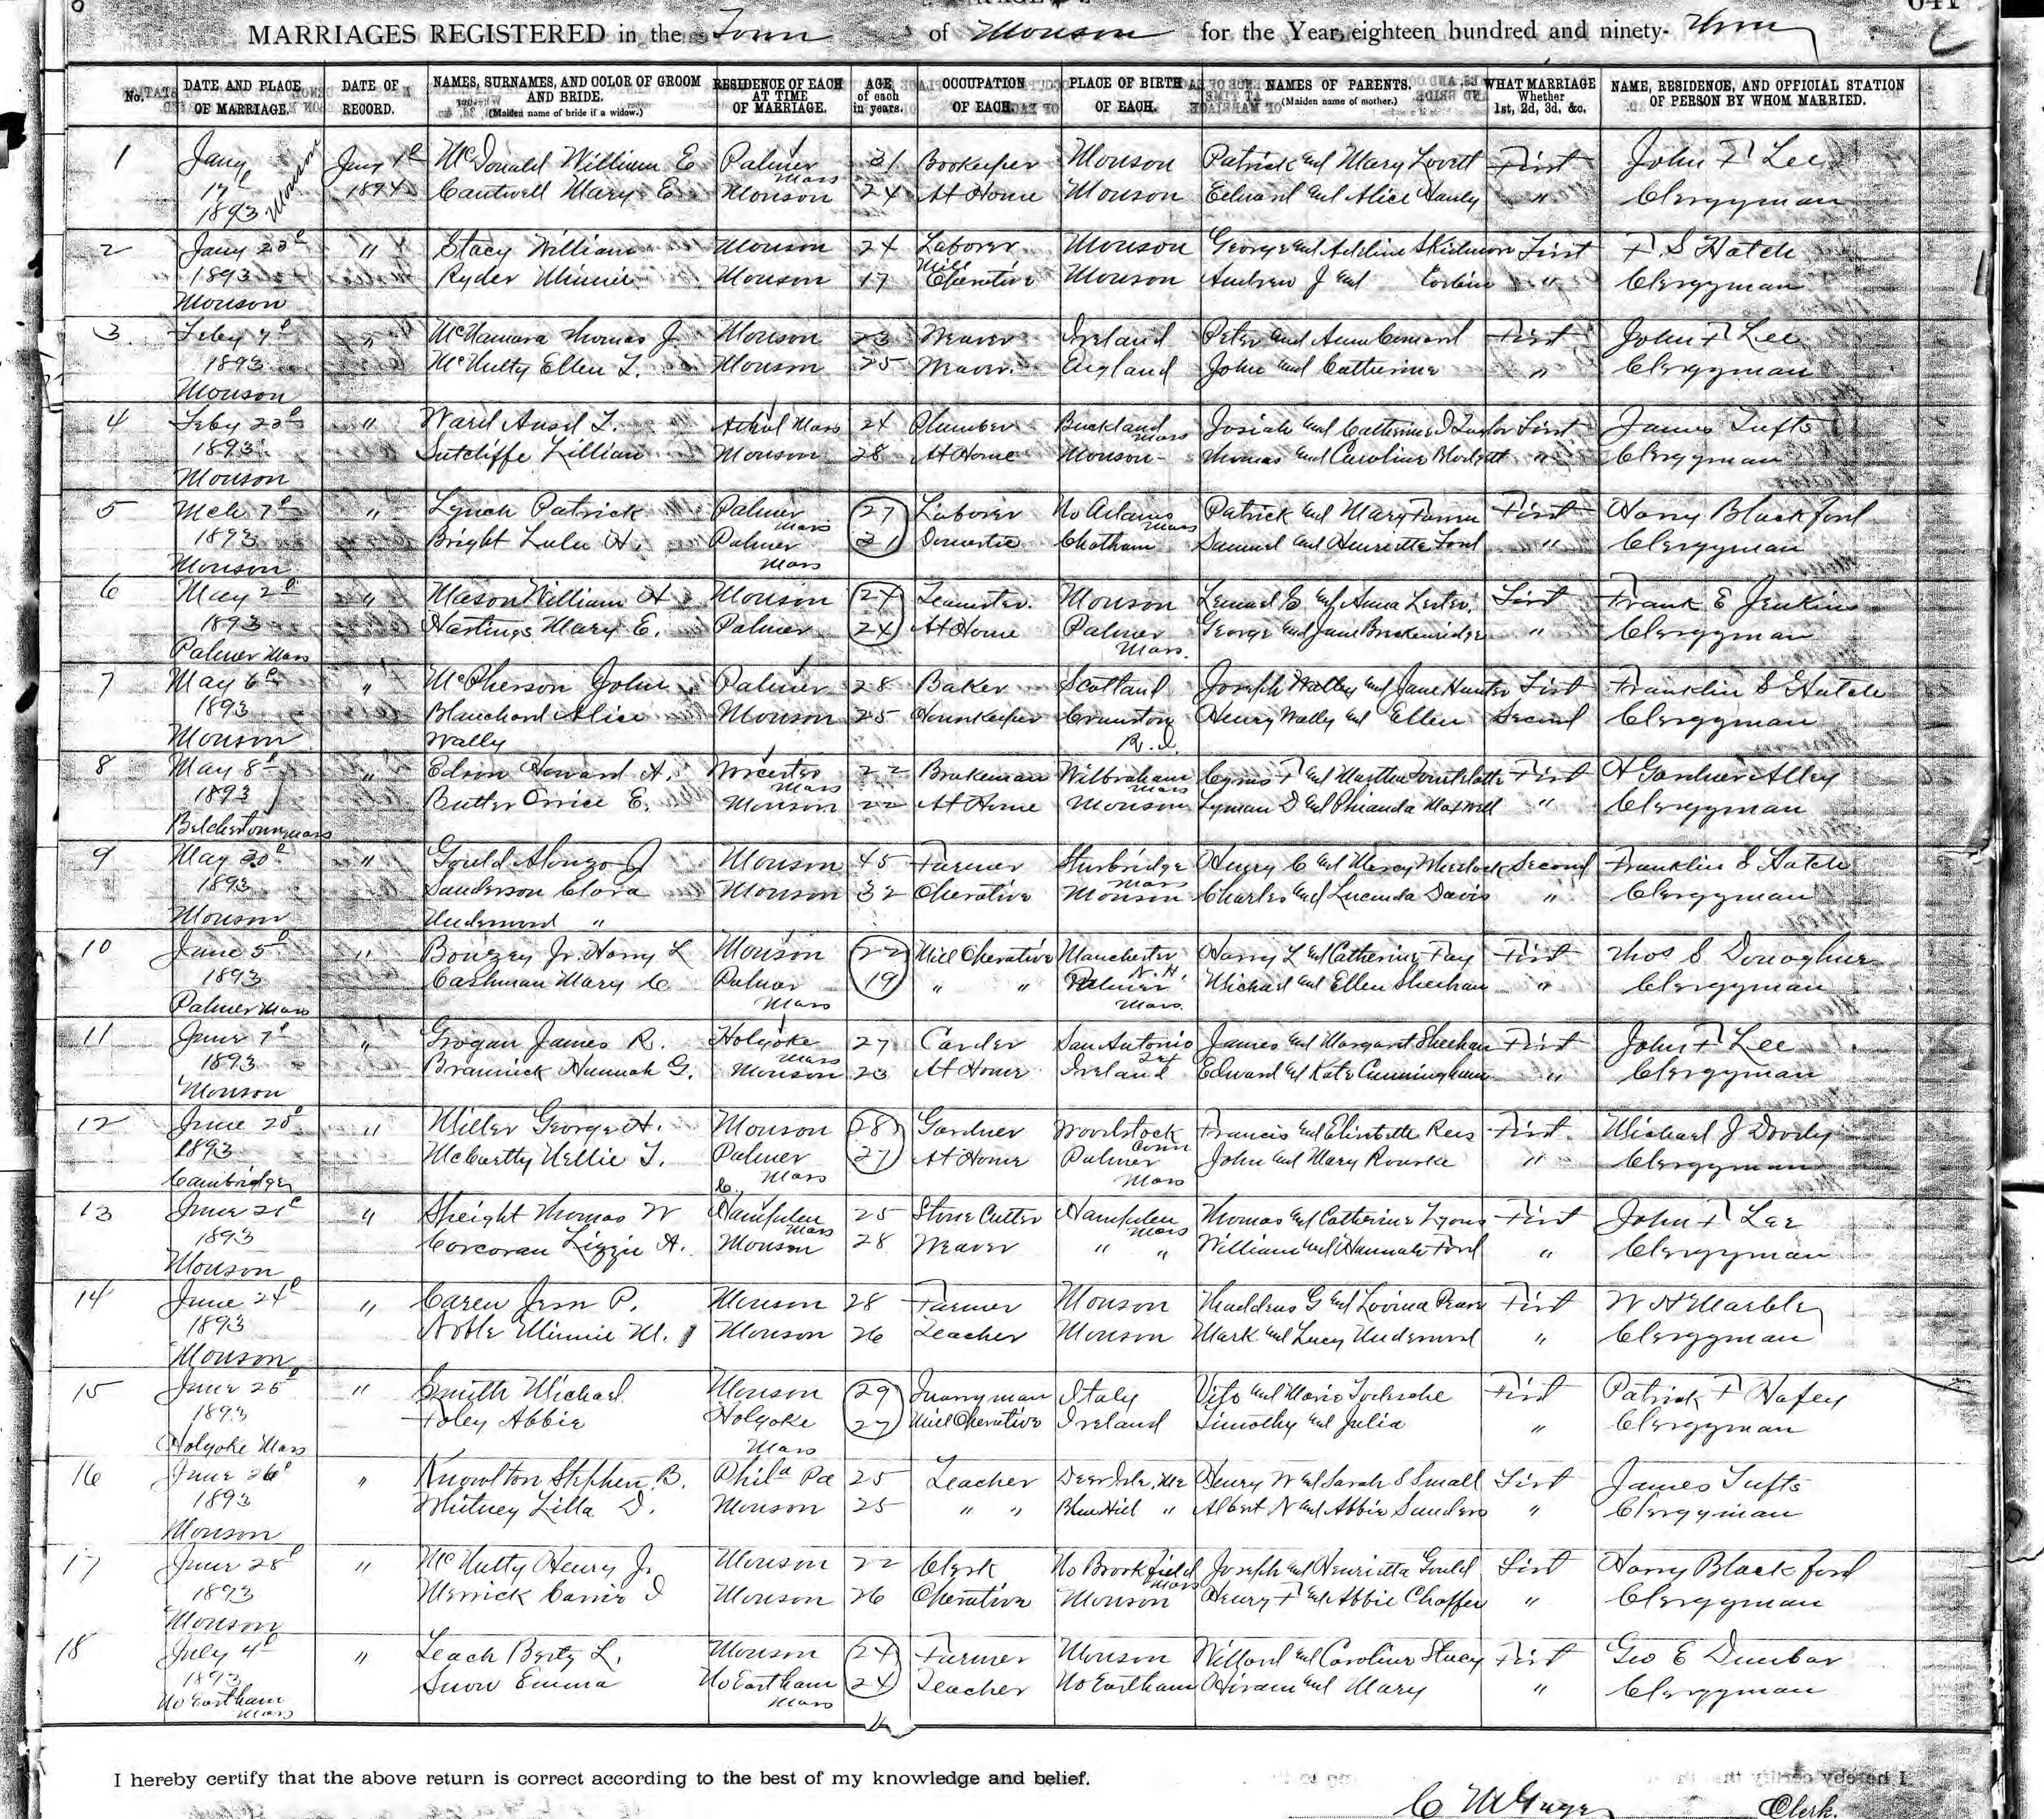 641
MARRIAGES REGISTERED in the Town of Monson for the Year eighteen hundred and ninety-
No. DATE AND PLACE OF MARRIAGE. DATE OF RECORD. NAMES, SURNAMES, AND COLOR OF GROOM AND BRIDE. (Maiden name of bride if a widow.) RESIDENCE OF EACH AT TIME OF MARRIAGE. AGE of each in years. OCCUPATION OF EACH. PLACE OF BIRTH OF EACH. NAMES OF PARENTS. (Maiden name of mother.) WHAT MARRIAGE Whether 1st, 2d, 3d, &c. NAME, RESIDENCE, AND OFFICIAL STATION OF PERSON BY WHOM MARRIED.
1 Jany McDonald William E Palmer Mass 31 Bookeeper Monson Patrick and Mary Lovett First John F Lee
1893 Monson 1894 Cantwell Mary E. Monson 24 At Home Monson Edward and Alice Hanly " Clergyman
2 Jany 23d " Stacy William Monson 24 Laborer Monson George and Adeline Skidmore First F. S Hatch
1893 Ryder Minnie Monson 17 Mill Operative Monson Andrew J and Corbin " Clergyman
Monson
3 Feby 7d " McNamara Thomas J. Monson 23 Weaver Ireland Peter and Ann First John F Lee
1893 McNulty Ellen T. Monson 25 Weaver England John and Catherine " Clergyman
Monson
4 Feby 23d " Ward Ansel L. Athol Mass 24 Plumber Buckland Mass Josiah and Catherine D Taylor First James Tufts
1893 Sutcliffe Lillian Monson 28 At Home Monson Thomas and Caroline Blodgett " Clergyman
Monson
5 Mch 7d " Lynch Patrick Palmer Mass 27 Laborer No Adams Mass Patrick and Mary First Harry Blackford
1893 Bright Lulu H. Palmer Mass 21 Domestic Chatham Samuel and Henriette Ford " Clergyman
Monson
6 May 2d " Mason William H Monson 24 Teamster. Monson Lemuel E and Anna Lester. First Frank E Jenkins
1893 Hastings Mary E. Palmer 24 At Home Palmer Mass. George and Jane Breckenridge " Clergyman
Palmer Mass
7 May 6d " McPherson John Palmer 28 Baker Scotland Joseph Walley and Jane Hunter First Franklin S Hatch
1893 Blanchard Alice Monson 25 Housekeeper Cranston R.I. Henry Wally and Ellen Second Clergyman
Monson Wally
8 May 8d " Edson Howard A. Worcester Mass 22 Brakeman Wilbraham Mass Cyrus F and Martha First A Gardner Alley
1893 Butler Orrice E. Monson 22 At Home Monson Lyman D and Rhianda Maxwell " Clergyman
Belchertown Mass
9 May 20d " Gould Alonzo J Monson 45 Farmer Sturbridge Mass Henry C and Mercy Second Franklin S Hatch
1893 Sanderson Clara Monson 32 Operative Monson Charles and Lucinda Davis " Clergyman
Monson Underwood "
10 June 5d " Bougey Jr. Harry L Monson 22 Mill Operative Manchester N.H. Harry L and Catherine Fay First Thos S Donoghue
1893 Cashman Mary C Palmer Mass 19 " " Palmer Mass. Michael and Ellen Sheehan " Clergyman
Palmer Mass
11 June 7d " Grogan James R. Holyoke Mass 27 Carder San Antonio Tex James and Margaret Sheehan First John F Lee
1893 Brannick Hannah G. Monson 23 At Home Ireland Edward and Kate Cunningham " Clergyman
Monson
12 June 20d " Miller George H. Monson 28 Gardner Woodstock Conn Francis and Elisebette Rees First Michael J Doody
1893 McCartty Nellie T. Palmer Mass 27 At Home Palmer Mass John and Mary Rourke " Clergyman
Cambridge
13 June 21d " Speight Thomas W Hampden Mass 25 Stone Cutter Hampden Mass Thomas and Catherine Lyons First John F Lee
1893 Corcoran Lizzie A. Monson 28 Weaver " " William and Hannah Ford " Clergyman
Monson
14 June 24d " Carew Jesse P. Monson 28 Farmer Monson Thaddeus G and Lovina First W H Marble
1893 Noble Minnie M. Monson 26 Teacher Monson Mark and Lucy Underwood " Clergyman
Monson
15 June 25d " Smith Michael Monson 29 Quarryman Italy Vito and Mario First Patrick F Hafey
1893 Foley Abbie Holyoke Mass 27 Mill Operative Ireland Timothy and Julia " Clergyman
Holyoke Mass
16 June 26d " Knowlton Stephen B. Phila Pa 25 Teacher Deer Isle, Me Henry W and Sarah S Small First James Tufts
1893 Whitney Lilla D. Monson 25 " " Blue Hill " Albert N and Abbie Sanders " Clergyman
Monson
17 June 28d " McNutty Henry Jr Monson 22 Clerk No Brookfield Mass Joseph and Henrietta Gould First Harry Blackford
1893 Merrick Carrie I Monson 26 Operative Monson Henry F and Abbie Chaffee " Clergyman
Monson
18 July 4d " Leach Berty L. Monson 24 Farmer Monson Willard and Caroline Stacy First Geo E Dunbar
1893 Snow Emma No Eastham Mass 24 Teacher No Eastham Hiram and Mary " Clergyman
No Eastham Mass
I hereby certify that the above return is correct according to the best of my knowledge and belief.
Clerk.